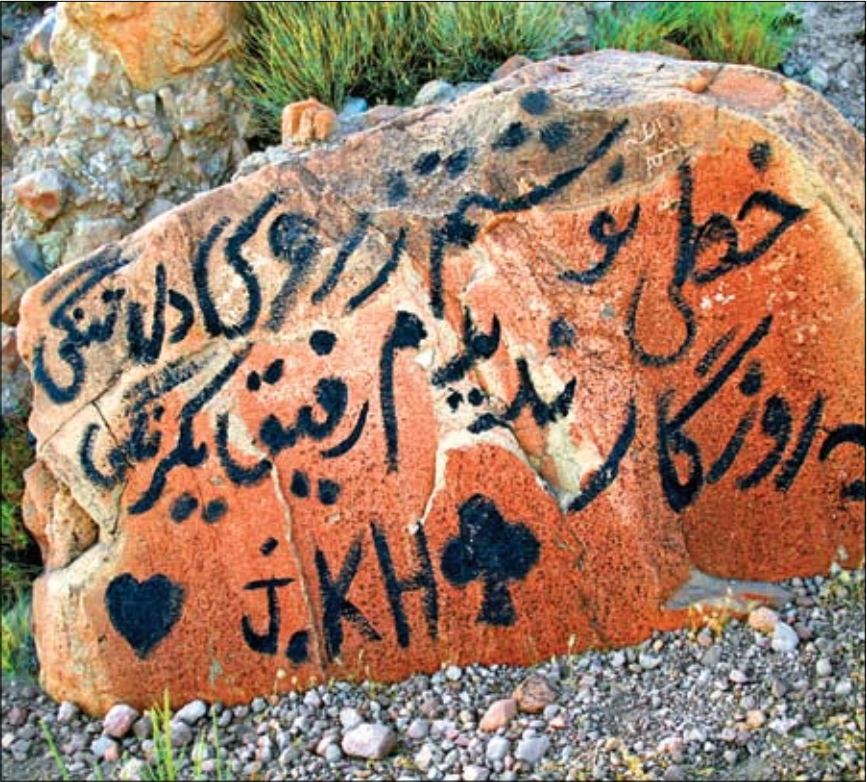 خطی نوشتم ز روی دل تنگی
به روزگار ندیدم رفیق یکرنگی
j.KH